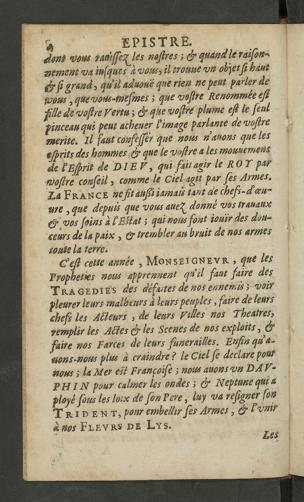 EPISTRE.
dont vous ravissez les nostres ; & quand le raison-
nement va iusques à vous, il trouve vn objet si haut
& si grand, qu'il aduouë que rien ne peut parler de
vous, que vous-mesmes ; que vostre Renommée est
fille de vostre Vertu ; & que vostre plume est le seul
pinceau qui peut acheuer l'image parlante de vostre
merite. Il faut confesser que nous n'auons que les
esprits des hommes, & que le vostre a les mouuemens
de l'Esprit de DIEV, qui fait agir le ROY par
vostre conseil, comme le Ciel agit par ses Armes.
La FRANCE ne fit aussi iamais tant de chefs-d'œu-
ure, que depuis que vous auez donné vos trauaux
& vos soins à l'Estat ; qui nous font iouïr des dou-
ceurs de la paix, & trembler au bruit de nos armes
toute la terre.
C'est cette année, MONSEIGNEVR, que les
Propheties nous apprennent qu'il faut faire des
TRAGEDIES des défaites de nos ennemis ; voir
pleurer leurs malheurs à leurs peuples, faire de leurs
chefs les Acteurs, de leurs Villes nos Theatres,
remplir les Actes & les Scenes de nos exploits, &
faire nos Farces de leurs funerailles. Enfin qu'a-
uons-nous plus à craindre ? le Ciel se declare pour
nous ; la Mer est Françoise ; nous auons vn DAV-
PHIN pour calmer les ondes ; & Neptune qui a
ployé sous les loix de son Pere, luy va resigner son
TRIDENT, pour embellir ses Armes, & l'vnir
à nos FLEVRS DE LYS.
Les